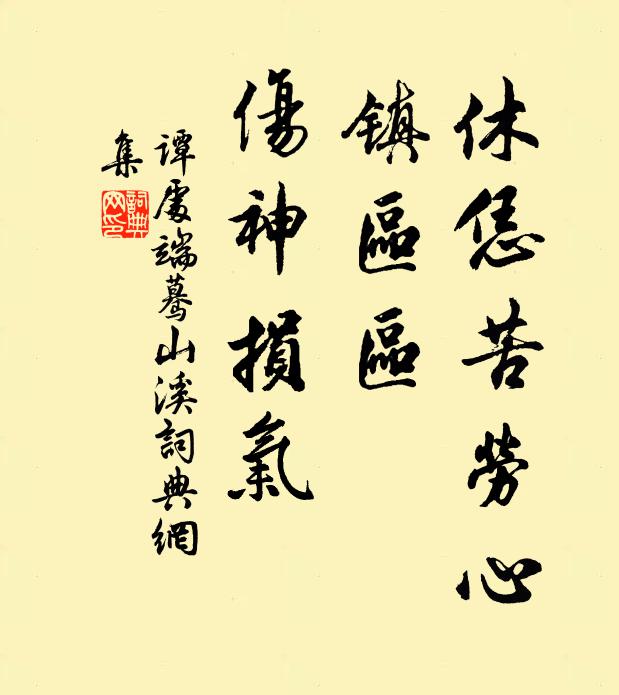 休恁苦勞心
鎮區區
傷神損氣
譚處端驀山溪詞典網
集
詞典
网印